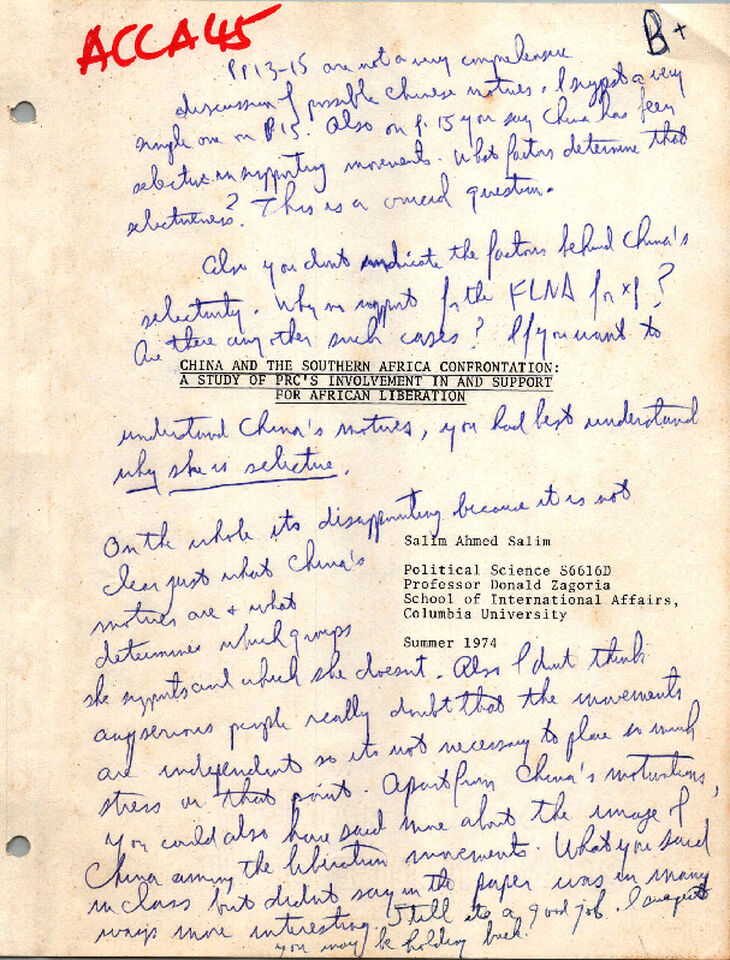 ACCA45
B+
Pp 13-15 are not a very comprehensive
discussion of possible Chinese motives. I suggest a very
simple one on p 15. Also on p. 15 you say China has been
selective in supporting movements. What factors determine that
selectiveness? This is a crucial question.
Also you dont indicate the factors behind China's
selectivity. Why no support for the FLNA for xpl?
Are there any other such cases? If you want to
CHINA AND THE SOUTHERN AFRICA CONFRONTATION:
A STUDY OF PRC'S INVOLVEMENT IN AND SUPPORT
FOR AFRICAN LIBERATION
understand China's motives, you had best understand
why she is selective.
On the whole its disappointing because it is not
clear just what China's
motives are & what
determines which groups
she supports and which she doesnt. Also I dont think
any serious people really doubt that the movements
are independent so its not necessary to place so much
stress on that point. Apart from China's motivations,
you could also have said more about the image of
China among the liberation movements. What you said
in class but didnt say in the paper was in many
ways more interesting. Still its a good job. I suspect
you may be holding back.
Salim Ahmed Salim
Political Science S6616D
Professor Donald Zagoria
School of International Affairs,
Columbia University
Summer 1974